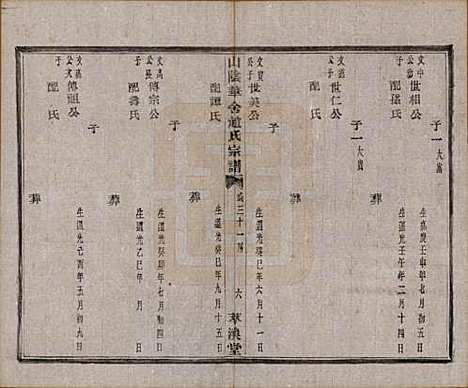 文中公子
世相公
子一
大富
生嘉慶壬申年七月初五
配孫氏
生道光壬午年二月十四
葬
子一
大寶
世仁公
公子
配氏
葬
文貴公子
世美公
生道光癸巳年六月十一
配譚氏
生道光癸巳年九月十五
葬
子
山陰華舍趙氏宗譜
卷三十一
六
萃渙堂
傳宗公
生道光癸卯年七月初四
配壽氏
生道光乙巳年 月 日
葬
子
文
公子
傳祖公
生道光己酉年五月初九
配氏
葬
子